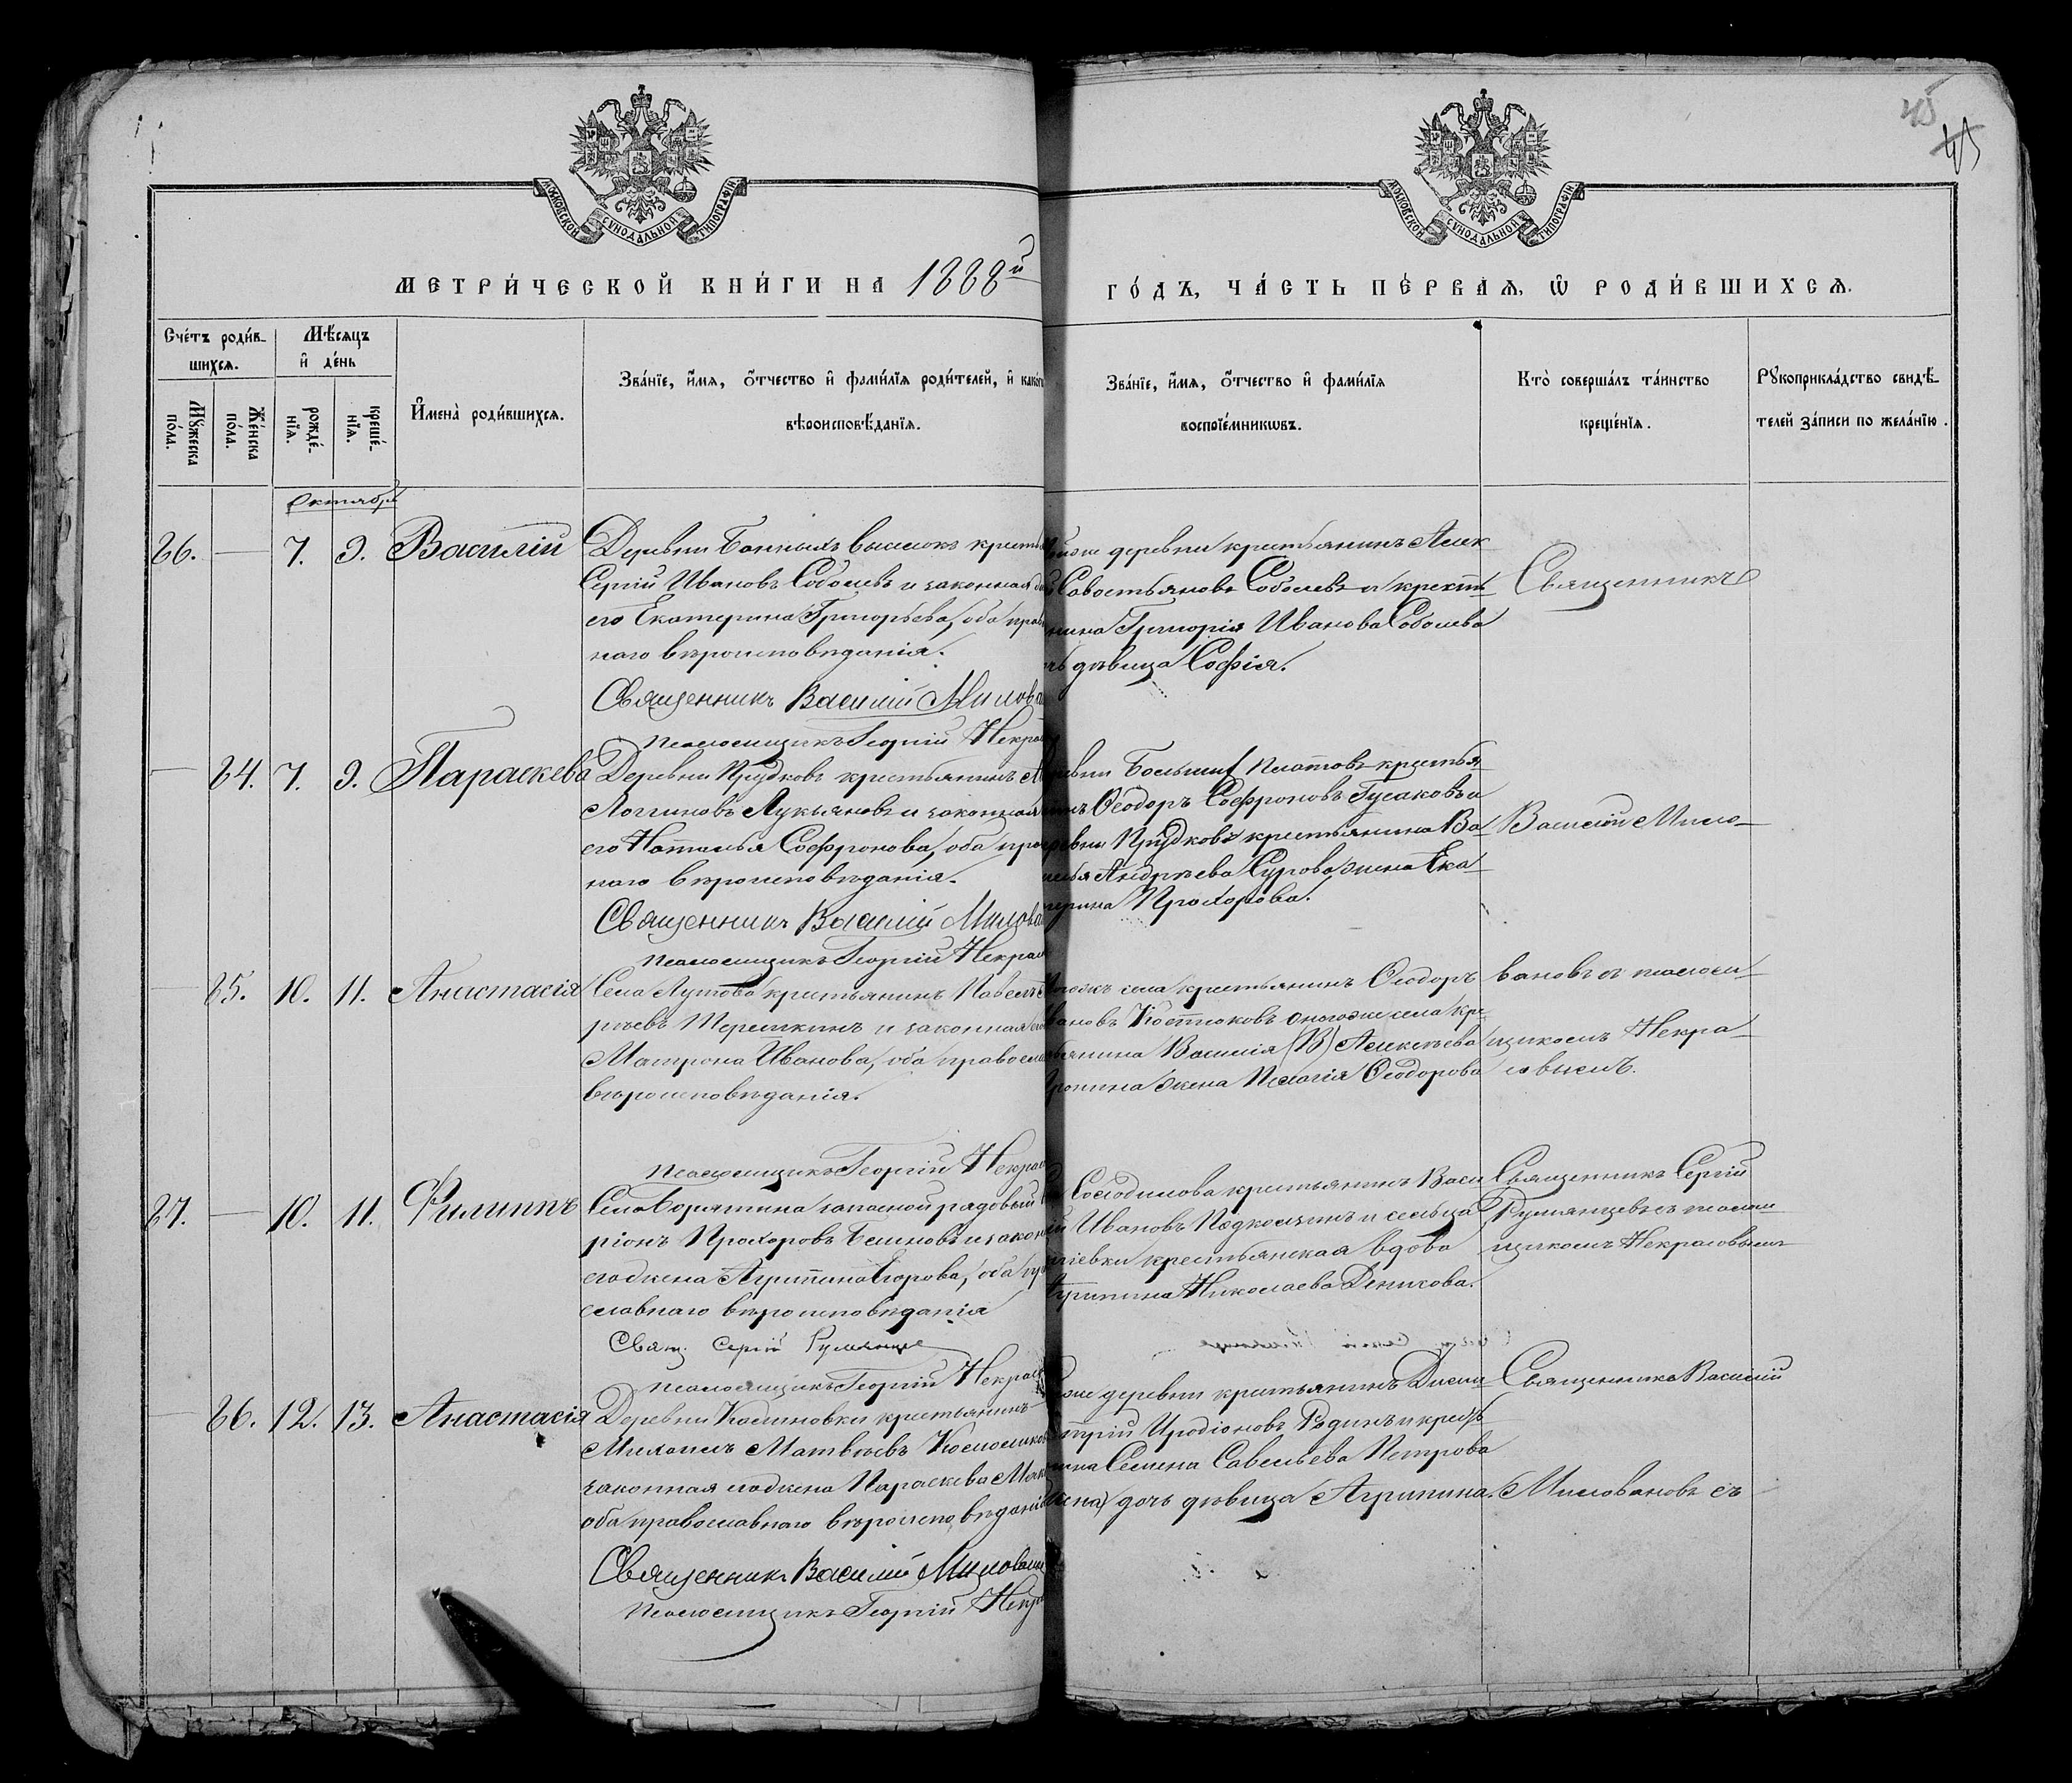 45
45
МОСКОВСКОЙ СУНОДАЛЬНОЙ ТИПОГРАФІИ
МОСКОВСКОЙ СУНОДАЛЬНОЙ ТИПОГРАФІИ
МЕТРИ́ЧЕСКОЙ КНИ́ГИ НА 1888й
ГО́ДЪ, ЧА́СТЬ ПЕ́РВАѦ, Ѡ҆ РОДИ́ВШИХСѦ.
Сче́тъ роди́в-
шихсѧ.
Мѣ́сѧцъ
и҆ де́нь
Мꙋ́жеска по́ла.
Же́нска по́ла.
рожде́-
нїѧ.
креще́-
нїѧ.
И҆мена̀ роди́вшихсѧ.
Зва́нїе, и҆́мѧ, ѻ҆́тчество и҆ фами́лїѧ роди́телей, и҆ како́г
вѣроисповѣ́данїѧ.
Зва́нїе, и҆́мѧ, ѻ҆́тчество и҆ фами́лїѧ
воспрїе́мникѡвъ.
Кто̀ соверша́лъ та́инство
креще́нїѧ.
Рꙋкоприкла́дство свидѣ́-
телей за́писи по жела́нїю.
Октября
26. — 7. 9. Василій
Деревни выселокъ кресть
Сергій Ивановъ Соболевъ и законная
его Екатерина Григорьева, оба прав
наго вѣроисповѣданія.
Священникъ Василій Милова
Псаломщикъ Георгій Некра
деревни крестьянинъ Алек
Савостьяновъ Соболевъ и крестъ
нина Григорія Иванова Соболева
дѣвица Софія.
Священникъ
— 24. 7. 9. Параскева
Деревни Прудковъ крестьянинъ
Логгиновъ Лукьяновъ и законная
его Наталья Софронова, оба прав
наго вѣроисповѣданія.
Священникъ Василій Милова
Псаломщикъ Георгій Некрас
Платовъ крестья
Ѳеодоръ Софроновъ Гусаковъ и
Прудковъ крестьянина Ва
Андрѣева Сурова жена Ека
терина Прохорова.
Василій Мило-
— 25. 10. 11. Анастасія
Села Лутова крестьянинъ Павелъ
рѣевъ Терешкинъ и законная его
Матрона Иванова, оба правосла
вѣроисповѣданія.
Псаломщикъ Георгій Некрас
села крестьянинъ Ѳеодоръ
вановъ Костюковъ онагоже села кре
стьянина Василія (В) Алексѣева
жена Пелагія Ѳеодорова
вановъ съ псалом
щикомъ Некра-
совымъ.
27. — 10. 11. Филиппъ
Села Борятина запасной рядовый
ріонъ Прохоровъ Блиновъ и закон
его жена Агрипина Егорова, оба пра
славнаго вѣроисповѣданія
Свящ. Сергій Румянце
Псаломщикъ Георгій Некрас
крестьянинъ Васи
Ивановъ Подколзинъ и сельца
крестьянская вдова
Агрипина Николаева Деникова.
Священникъ Сергій
Румянцевъ съ псалом
щикомъ Некрасовымъ
— 26. 12. 13. Анастасія
Деревни Калиновки крестьянинъ
Михаилъ Матвѣевъ
законная его жена Параскева
оба православнаго вѣроисповѣданія
Священникъ Василій Милован
Псаломщикъ Георгій Некра
деревни крестьянинъ Дими
трій Иродіоновъ Родинъ и кресть
нина Семена Савельева Петрова
дочь дѣвица Агрипина.
Священникъ Василій
Миловановъ съ